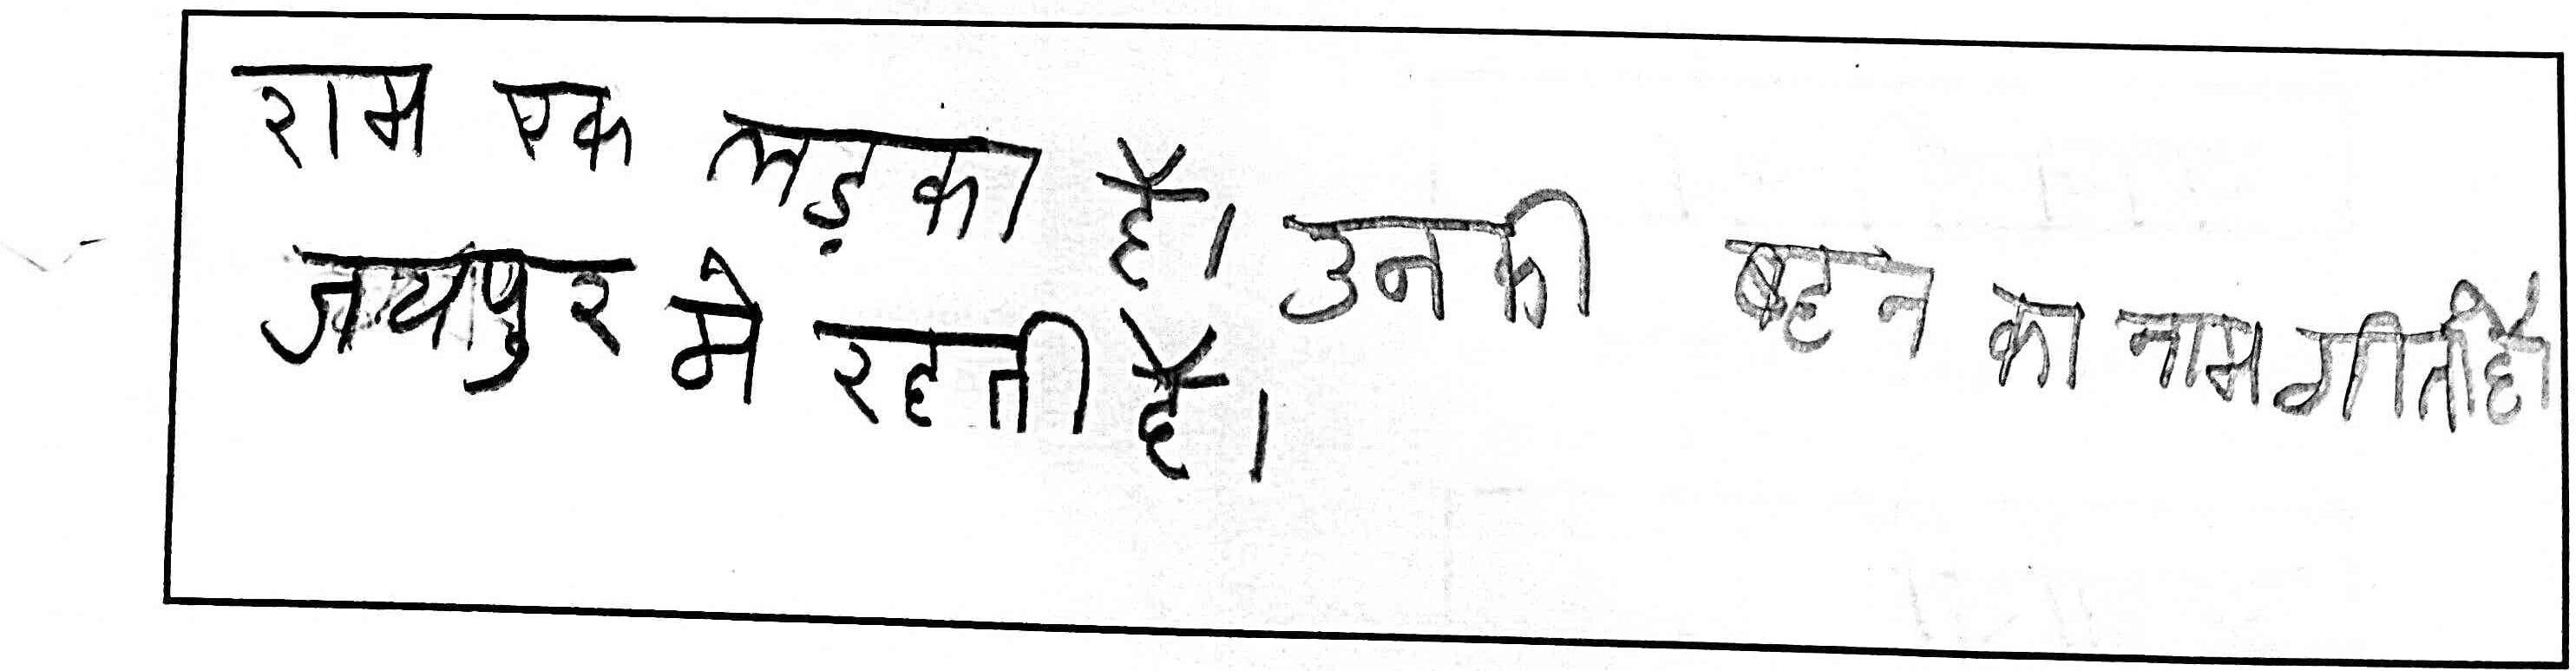 राम एक लड़का है। उनकी बहन का नाम गीता है।
जयपुर मे रहती है।